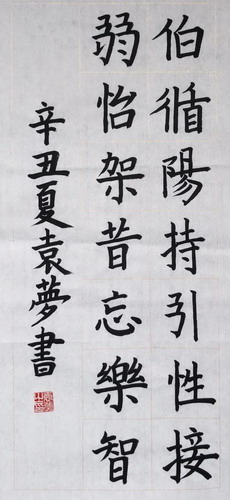 伯循陽持引性接
弱怡架昔忘樂智
辛丑夏袁夢書